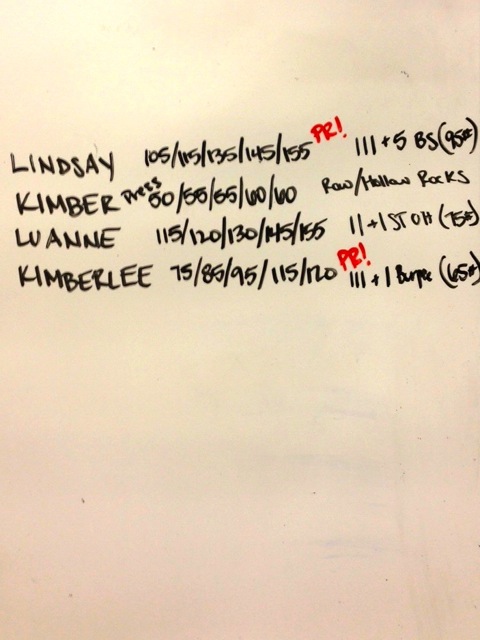 LINDSAY 105/115/135/145/155 PR! III + 5 BS (95#)
KIMBER Press 50/55/55/60/60 Row/Hollow Rocks
LUANNE 115/120/130/145/155 II + 1 STOH (75#)
KIMBERLEE 75/85/95/115/120 PR! III + 1 Burpee (65#)